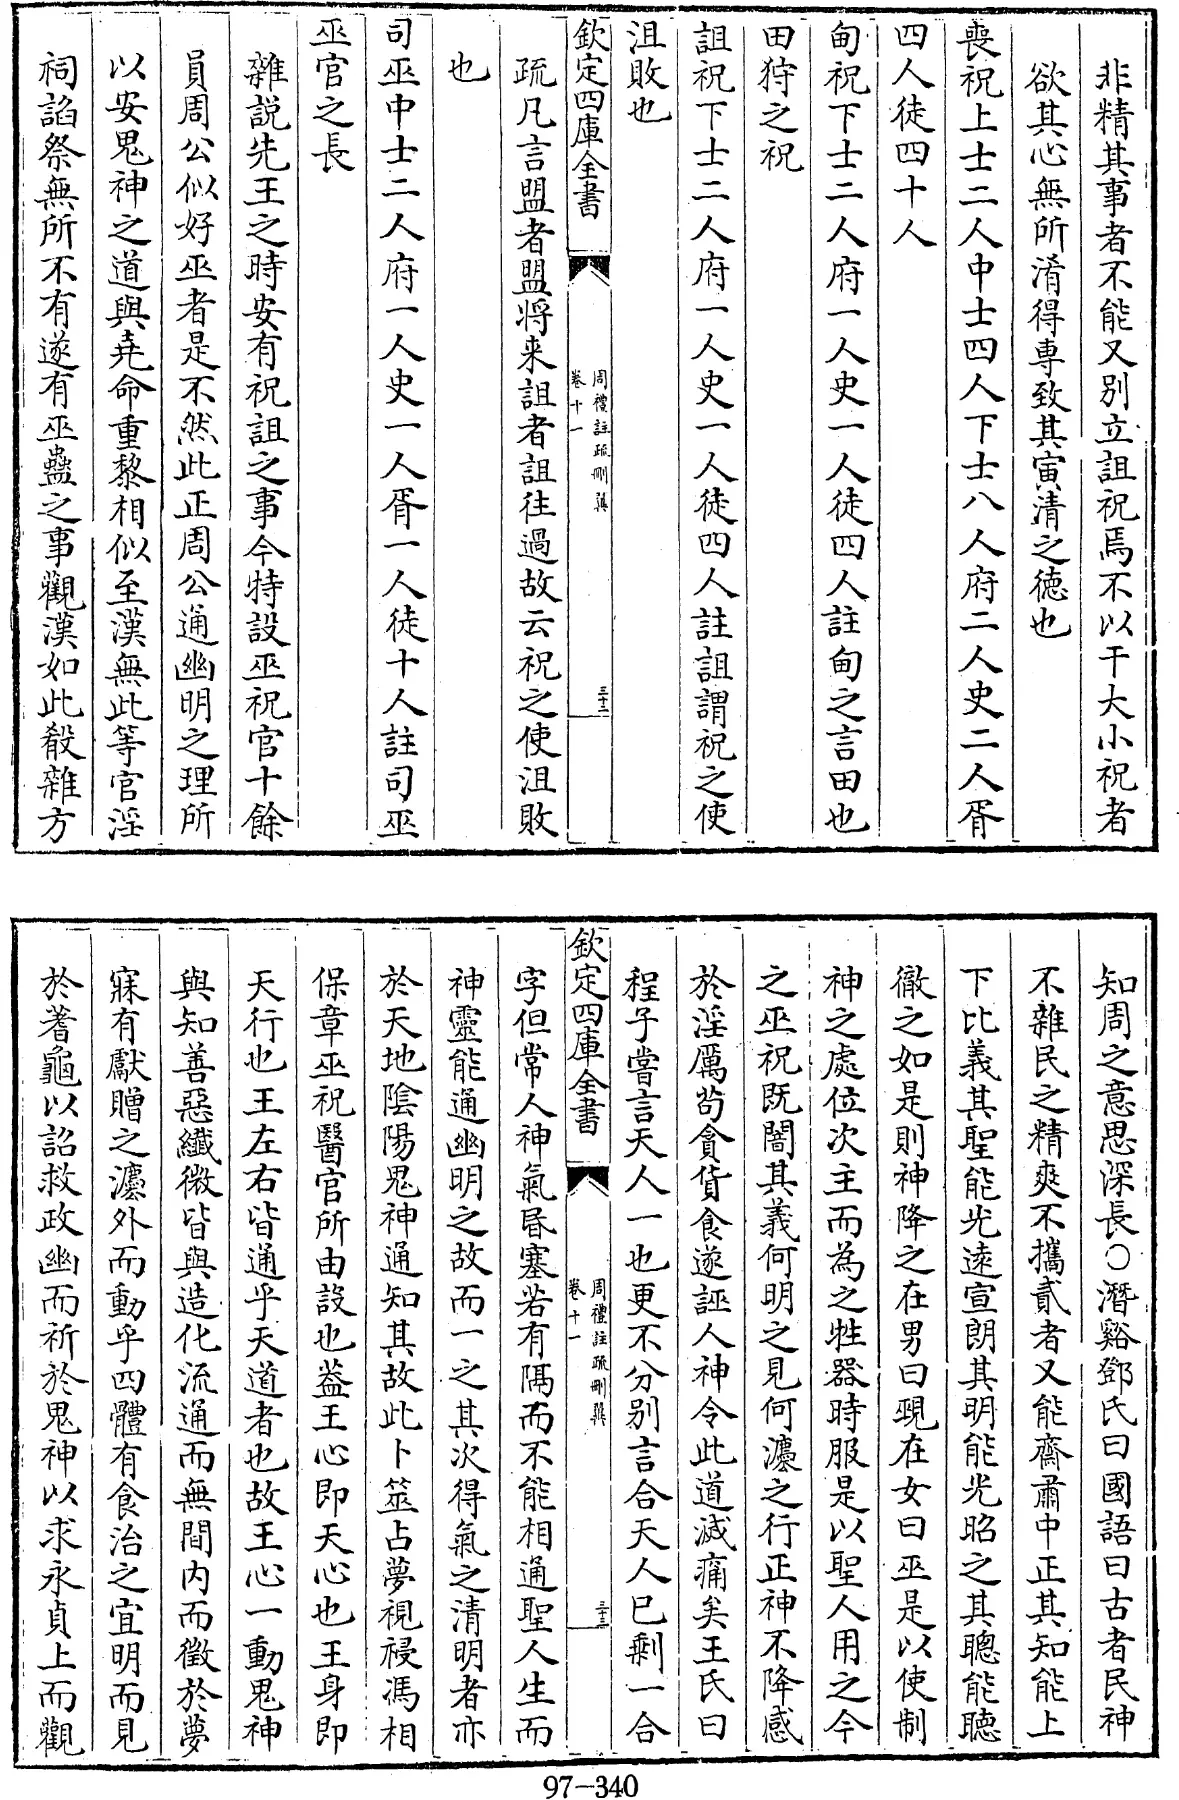 非精其事者不能又別立詛祝焉不以干大小祝者
欲其心無所淆得専致其寅清之德也
喪祝上士二人中士四人下士八人府二人史二人胥
四人徒四十人
甸祝下士二人府一人史一人徒四人註甸之言田也
田狩之祝
詛祝下士二人府一人史一人徒四人註詛謂祝之使
沮敗也
欽定四庫全書
周禮註疏刪翼
卷十一
三十二
疏凡言盟者盟将来詛者詛往過故云祝之使沮敗
也
司巫中士二人府一人史一人胥一人徒十人註司巫
巫官之長
雜説先王之時安有祝詛之事今特設巫祝官十餘
員周公似好巫者是不然此正周公通幽明之理所
以安鬼神之道與堯命重黎相似至漢無此等官淫
祠諂祭無所不有遂有巫蠱之事觀漢如此殽雜方
知周之意思深長○潛谿鄧氏曰國語曰古者民神
不雜民之精爽不攜貳者又能齋肅中正其知能上
下比義其聖能光逺宣朗其明能光昭之其聰能聽
徹之如是則神降之在男曰覡在女曰巫是以使制
神之處位次主而為之牲器時服是以聖人用之今
之巫祝既闇其義何明之見何灋之行正神不降感
於淫厲苟貪貨食遂誣人神令此道滅痛矣王氏曰
程子嘗言天人一也更不分別言合天人已剰一合
欽定四庫全書
周禮註疏刪翼
卷十一
三十三
字但常人神氣昬塞若有隔而不能相通聖人生而
神靈能通幽明之故而一之其次得氣之清明者亦
於天地陰陽鬼神通知其故此卜筮占夢視祲馮相
保章巫祝醫官所由設也葢王心即天心也王身即
天行也王左右皆通乎天道者也故王心一動鬼神
與知善惡纎微皆與造化流通而無間内而徵於夢
寐有獻贈之灋外而動乎四體有食治之宜明而見
於蓍龜以詔救政幽而祈於鬼神以求永貞上而觀
97-340